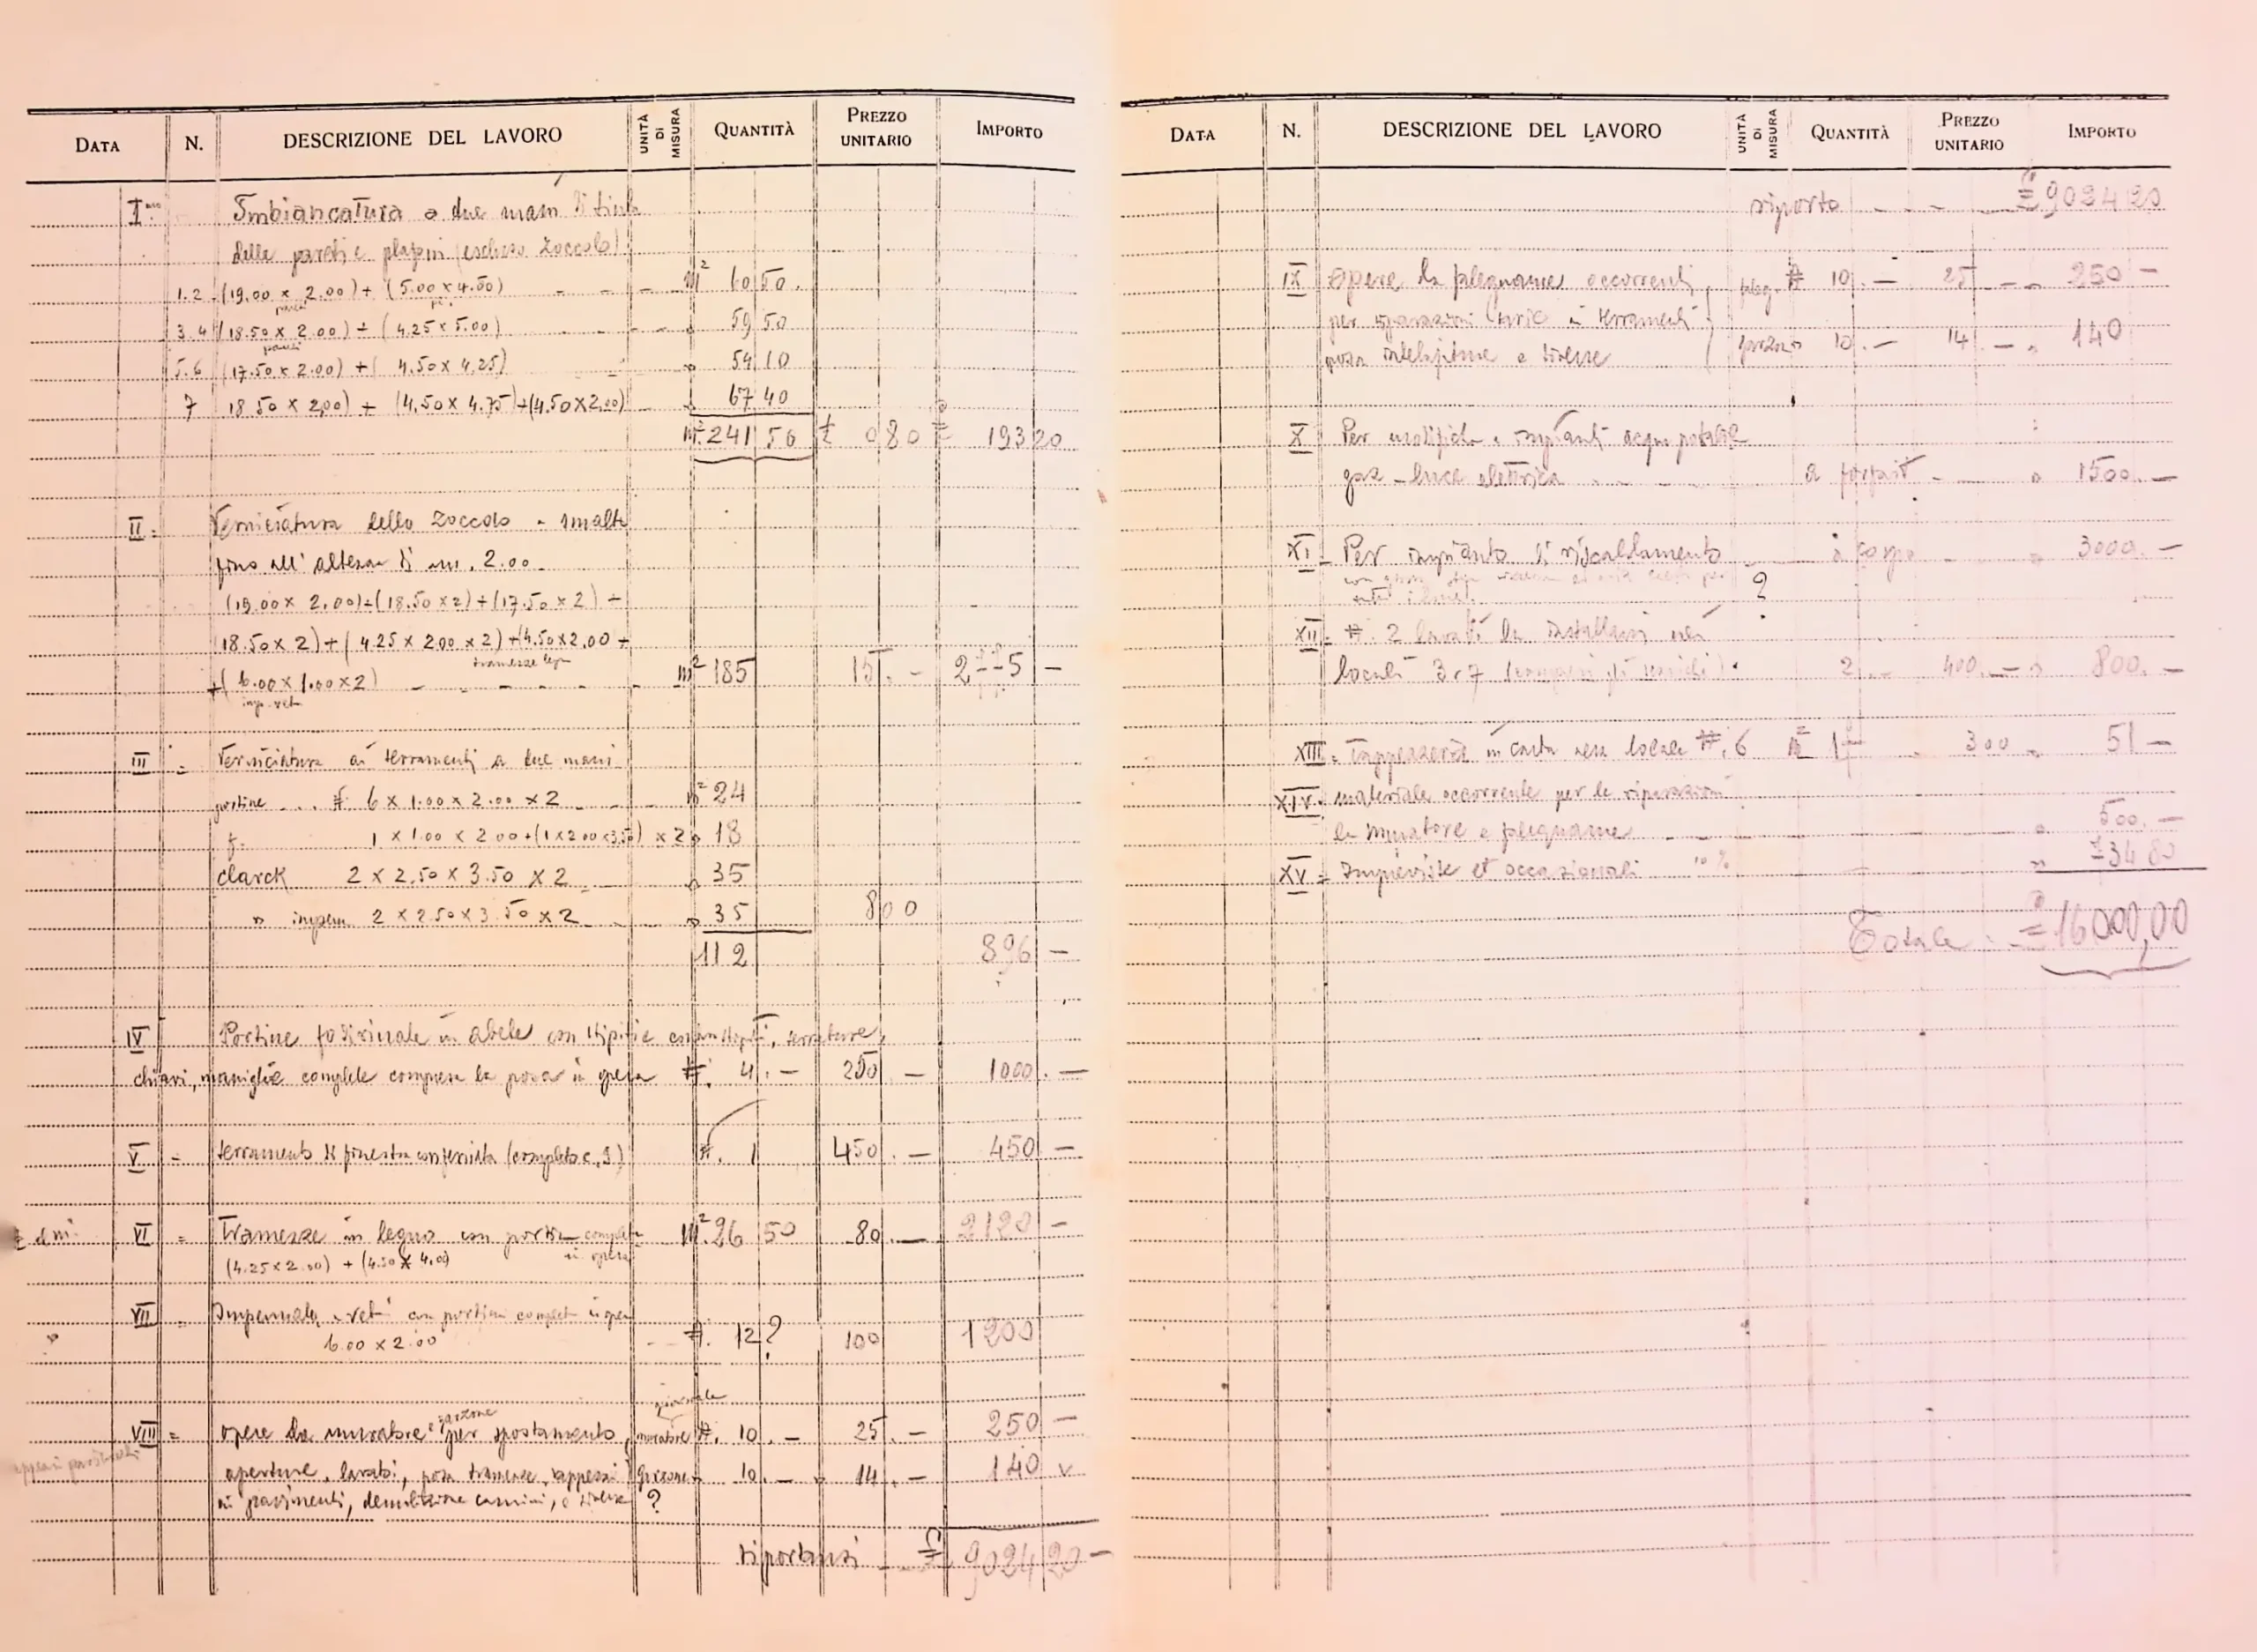 DATA N. DESCRIZIONE DEL LAVORO UNITÀ DI MISURA QUANTITÀ PREZZO UNITARIO IMPORTO
I Imbiancatura a due mani di tinta
delle pareti e plafoni (escluso zoccolo)
1.2 (19.00 x 2.00) + (5.00 x 4.50) M² 60 50
3.4 (18.50 x 2.00) + (4.25 x 5.00) 59 50
5.6 (17.50 x 2.00) + (4.50 x 4.25) 54 10
7 18.50 x 2.00) + (4.50 x 4.75) + (4.50 x 2.00) 67 40
M² 241 50 £ 0 80 £ 193 20
II Verniciatura dello zoccolo a smalto
fino all'altezza di m. 2.00
(19.00 x 2.00) + (18.50 x 2) + (17.50 x 2) +
(18.50 x 2) + (4.25 x 2.00 x 2) + 4.50 x 2.00 +
+ (6.00 x 1.00 x 2) M² 185 15. — —
III = Verniciatura ai serramenti a due mani
portine # 6 x 1.00 x 2.00 x 2 M² 24
f. 1 x 1.00 x 2.00 + (1 x 2.00 x 3.50) x 2 18
Clarck 2 x 2.50 x 3.50 x 2 35
" 2 x 2.50 x 3.50 x 2 35 8 00
112 896 —
IV Portine in abete con stipiti e serrature,
chiavi, maniglie complete compresa la posa in opera #. 4. — 250 — 1000. —
V = Serramento di finestra (completo c.s.) #. 1 450. — 450 —
VI = Tramezze in legno con portina completa in opera M² 26 50 80. — 2120 —
(4.25 x 2.50) + (4.00 x 4.00)
VII = Impennate a vetri con portine complete in opera
6.00 x 2.00 #. 12? 100 1200
giornale
VIII = opere da muratore e garzone per spostamento, muratore #. 10. — 25. — 250 —
aperture, lavabi, posa tramezze, rappezzi garzone 10. — 14. — 140
in pavimenti, demolizione camini, e diverse ?
riportarsi £ 9024 20 —
DATA N. DESCRIZIONE DEL LAVORO UNITÀ DI MISURA QUANTITÀ PREZZO UNITARIO IMPORTO
riporto £ 9024 20
IX Opere da falegname occorrenti faleg. # 10. — 25 — 250 —
per riparazioni varie ai serramenti
posa intelaiature e diverse garzone 10. — 14. — 140
X Per modifiche impianti acqua potabile
gaz - luce elettrica a forfait 1500. —
XI = Per impianto di riscaldamento a corpo 3000. —
?
XII = #. 2 lavabi da installarsi nei
locali 3 e 7 2. — 400. — 800. —
XIII = Tappezzeria in carta nel locale #. 6 300 51 —
XIV = materiale occorrente per le riparazioni
da muratore e falegname 500. —
XV = Impreviste et occazionali 10% 34 80
Totale £ 16000,00